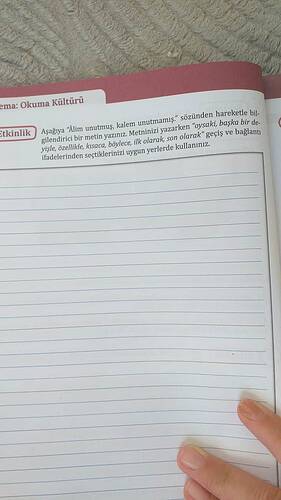 ema: Okuma Kültürü
Etkinlik
Aşağıya "Âlim unutmuş, kalem unutmamış." sözünden hareketle bil-
gilendirici bir metin yazınız. Metninizi yazarken "oysaki, başka bir de-
yişle, özellikle, kısaca, böylece, ilk olarak, son olarak" geçiş ve bağlantı
ifadelerinden seçtiklerinizi uygun yerlerde kullanınız.